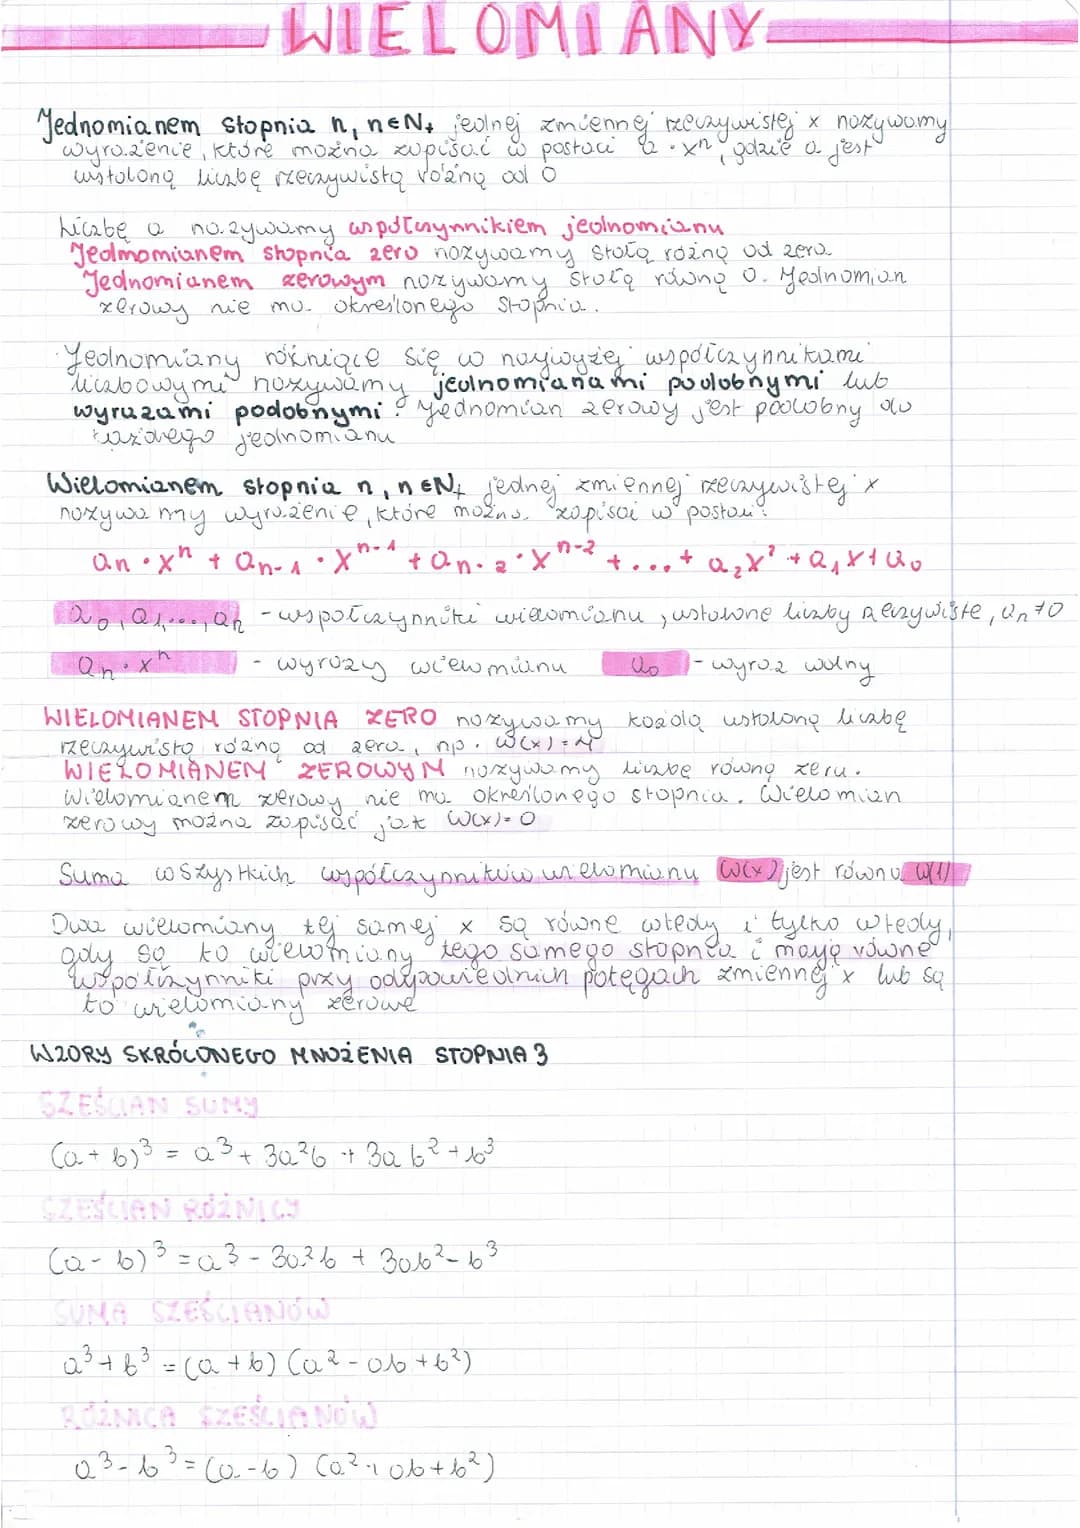 WIELOMIANY
Jednomianem stopnia n, n∈N₊ jednej zmiennej rzeczywistej x nazywamy
wyrażenie, które można zapisać w postaci a·xⁿ, gdzie a jest
ustaloną liczbę rzeczywistą różną od 0
Liczbę a nazywamy współczynnikiem jednomianu
Jednomianem stopnia zero nazywamy stałą różną od zera
Jednomianem zerowym nazywamy stałą równą 0. Jednomian
zerowy nie ma określonego stopnia.
Jednomiany różniące się co najwyżej współczynnikami
liczbowymi nazywamy jednomianami podobnymi lub
wyrazami podobnymi. Jednomian zerowy jest podobny do
każdego jednomianu
Wielomianem stopnia n, n∈N₊ jednej zmiennej rzeczywistej x
nazywamy wyrażenie, które można zapisać w postaci:
aₙ·xⁿ + aₙ₋₁·xⁿ⁻¹ + aₙ₋₂·xⁿ⁻² + ... + a₂x² + a₁x + a₀
a₀, a₁,..., aₙ - współczynniki wielomianu, ustalone liczby rzeczywiste, aₙ≠0
aₙ·xⁿ - wyrazy wielomianu a₀ - wyraz wolny
WIELOMIANEM STOPNIA ZERO nazywamy każdą ustaloną liczbę
rzeczywistą różną od zera, np. W(x)=4
WIELOMIANEM ZEROWYM nazywamy liczbę równą zeru.
Wielomianem zerowy nie ma określonego stopnia. Wielomian
zerowy można zapisać jak W(x)=0
Suma wszystkich współczynników wielomianu W(x) jest równa W(1)
Dwa wielomiany tej samej x są równe wtedy i tylko wtedy,
gdy są to wielomiany tego samego stopnia i mają równe
współczynniki przy odpowiednich potęgach zmiennej x lub są
to wielomiany zerowe
WZORY SKRÓCONEGO MNOŻENIA STOPNIA 3
SZEŚCIAN SUMY
(a+b)³ = a³+3a²b+3ab²+b³
SZEŚCIAN RÓŻNICY
(a-b)³ = a³-3a²b+3ab²-b³
SUMA SZEŚCIANÓW
a³+b³ = (a+b)(a²-ab+b²)
RÓŻNICA SZEŚCIANÓW
a³-b³ = (a-b)(a²+ab+b²)